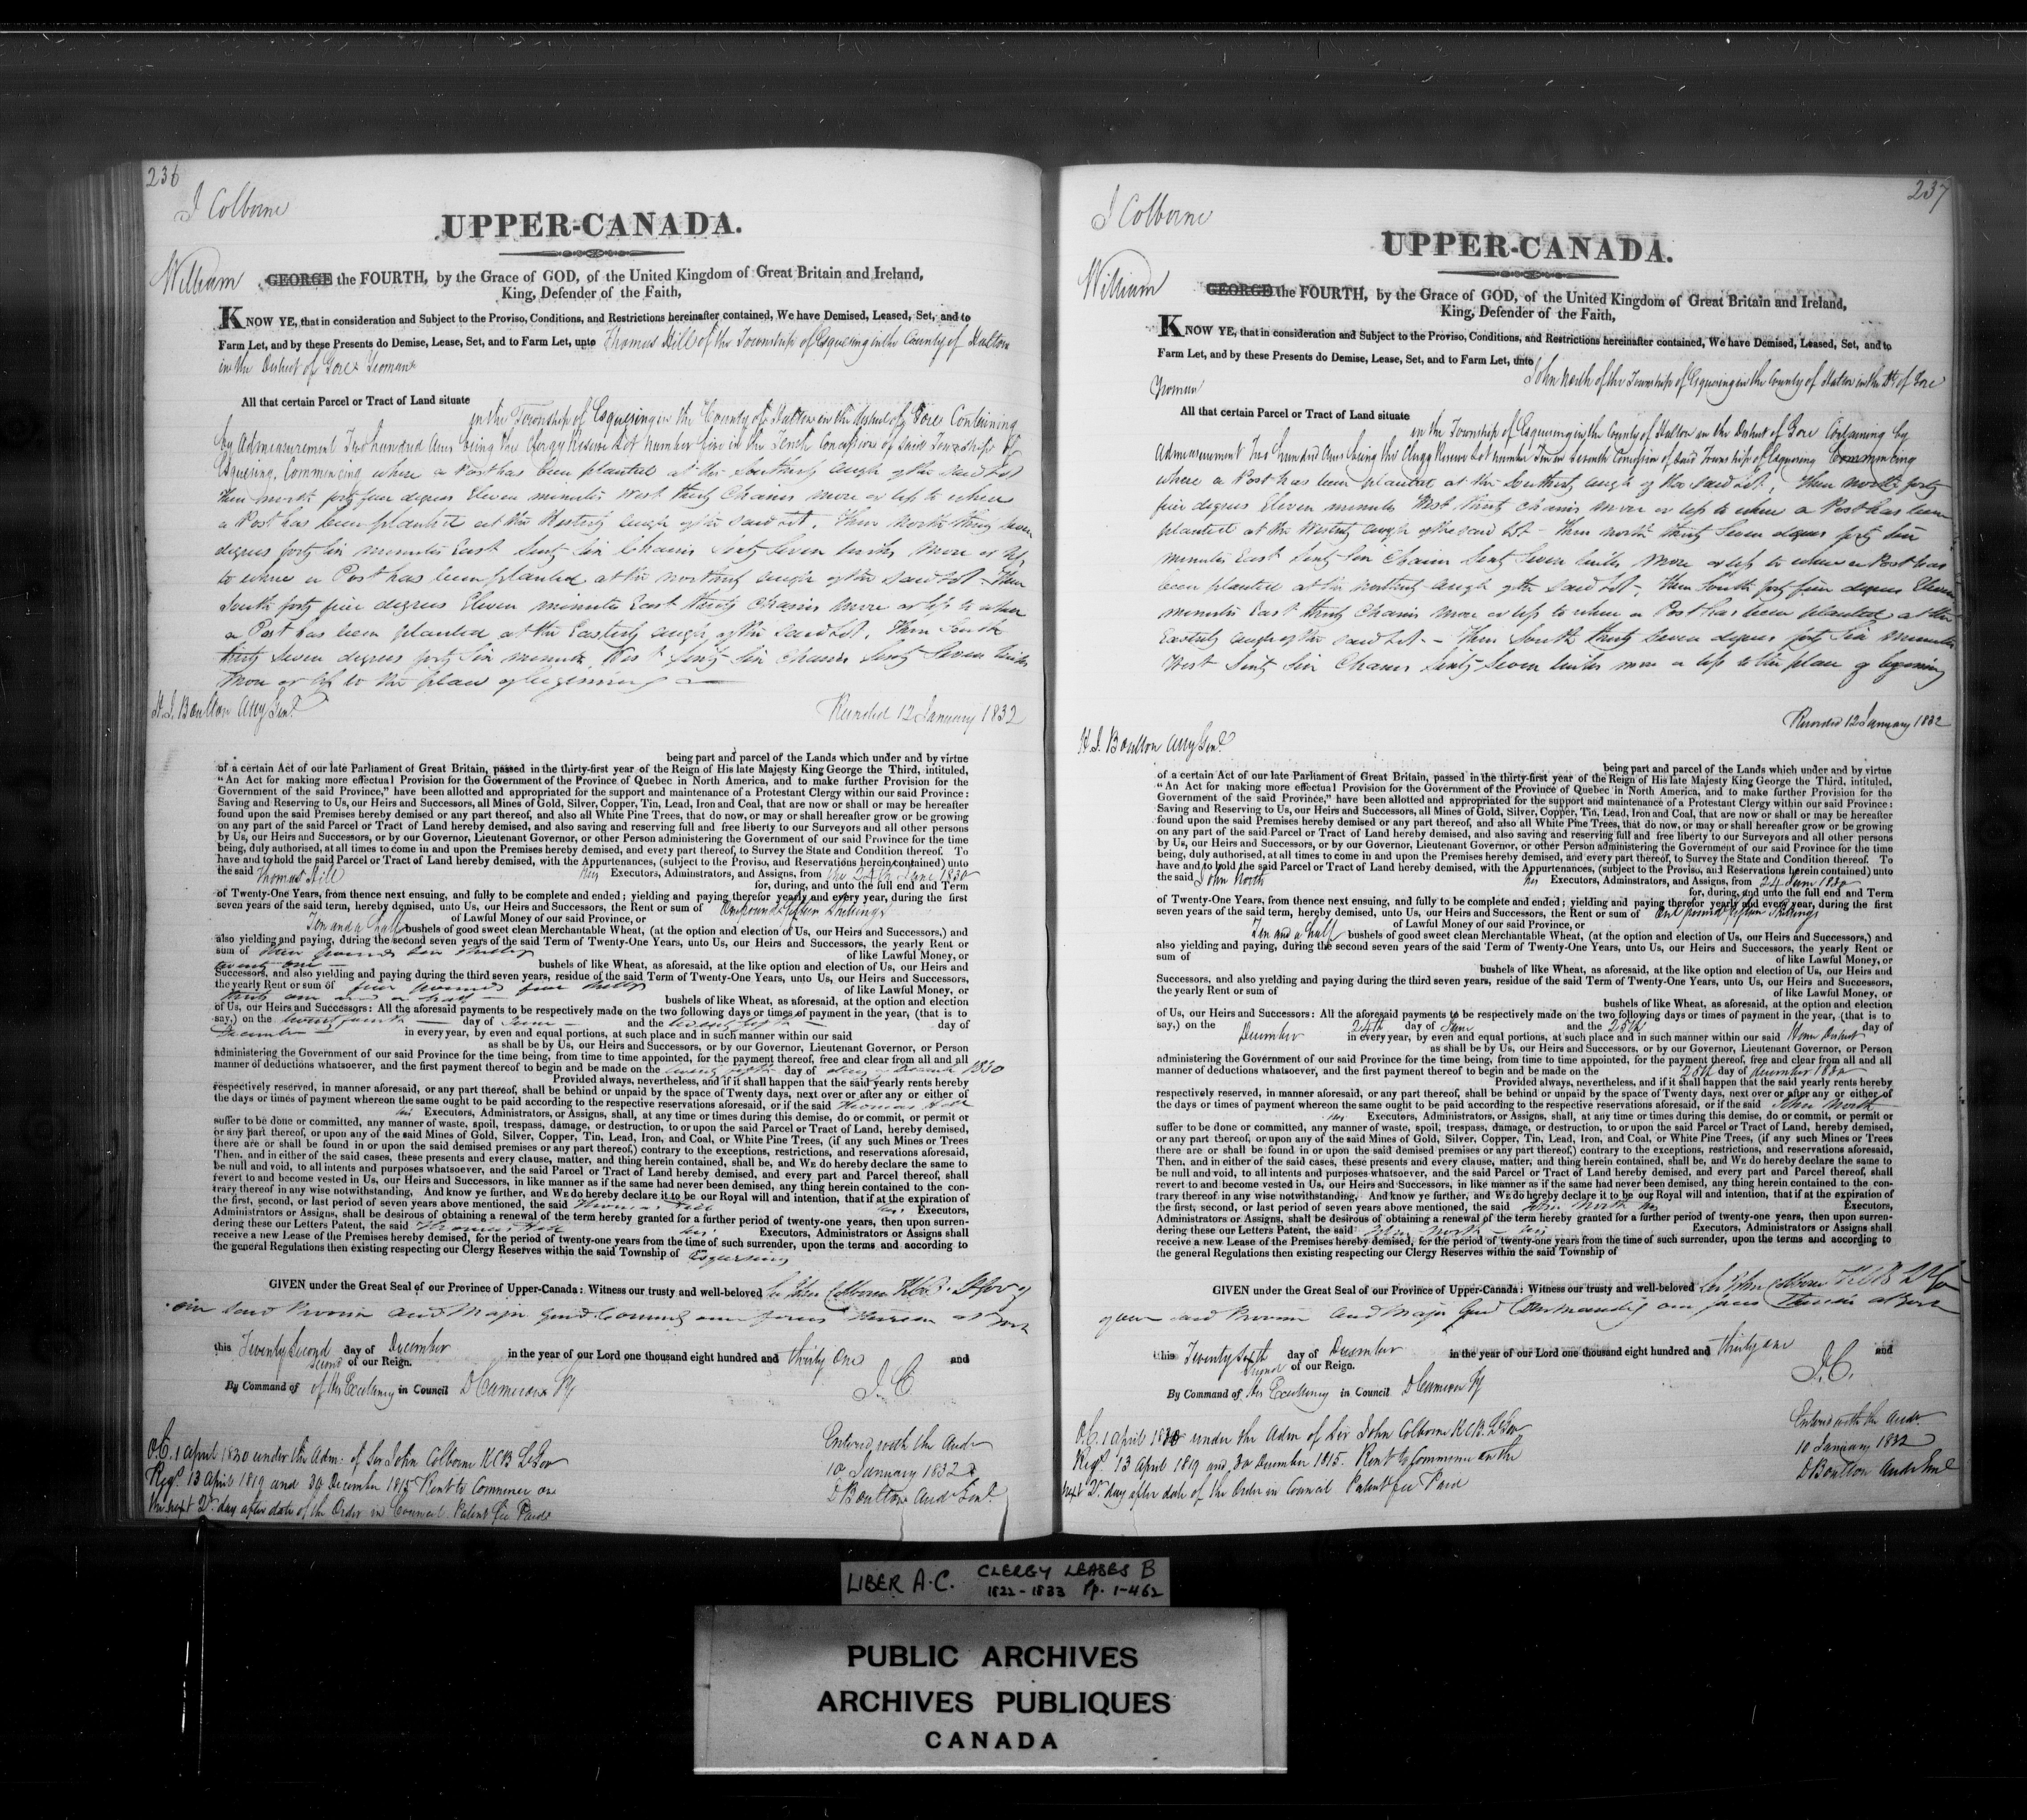 236
J Colborne
UPPER-CANADA.
William GEORGE the FOURTH, by the Grace of GOD, of the United Kingdom of Great Britain and Ireland,
King, Defender of the Faith,
KNOW YE, that in consideration and Subject to the Proviso, Conditions, and Restrictions hereinafter contained, We have Demised, Leased, Set, and to
Farm Let, and by these Presents do Demise, Lease, Set, and to Farm Let, unto Thomas Hill of the Township of Esquesing in the County of Halton
in the District of Gore Yeoman
All that certain Parcel or Tract of Land situate
in the Township of Esquesing in the County of Halton in the District of Gore Containing
by Admeasurement Two hundred Acres being the Clergy Reserve Lot Number five in the Tenth Concession of said Township of
Esquesing, Commencing where a Post has been planted at the Southerly angle of the said Lot
Then north forty five degrees Eleven minutes West thirty Chains more or less to where
a Post has been planted at the Westerly angle of the said Lot. Then North thirty seven
degrees forty six minutes East Sixty Six Chains Sixty Seven links more or less
to where a Post has been planted at the northerly angle of the said Lot Then
South forty five degrees Eleven minutes East thirty Chains more or less to where
a Post has been planted at the Easterly angle of the said Lot. Then South
thirty Seven degrees forty Six minutes West Sixty Six Chains Sixty Seven links
more or less to the place of beginning
H. J. Boulton Atty Genl.
Recorded 12 January 1832
being part and parcel of the Lands which under and by virtue
of a certain Act of our late Parliament of Great Britain, passed in the thirty-first year of the Reign of His late Majesty King George the Third, intituled,
"An Act for making more effectual Provision for the Government of the Province of Quebec in North America, and to make further Provision for the
Government of the said Province," have been allotted and appropriated for the support and maintenance of a Protestant Clergy within our said Province:
Saving and Reserving to Us, our Heirs and Successors, all Mines of Gold, Silver, Copper, Tin, Lead, Iron and Coal, that are now or shall or may be hereafter
found upon the said Premises hereby demised or any part thereof, and also all White Pine Trees, that do now, or may or shall hereafter grow or be growing
on any part of the said Parcel or Tract of Land hereby demised, and also saving and reserving full and free liberty to our Surveyors and all other persons
by Us, our Heirs and Successors, or by our Governor, Lieutenant Governor, or other Person administering the Government of our said Province for the time
being, duly authorised, at all times to come in and upon the Premises hereby demised, and every part thereof, to Survey the State and Condition thereof. To
have and to hold the said Parcel or Tract of Land hereby demised, with the Appurtenances, (subject to the Proviso, and Reservations herein contained) unto
the said Thomas Hill his Executors, Adminstrators, and Assigns, from the 24th June 1830
for, during, and unto the full end and Term
of Twenty-One Years, from thence next ensuing, and fully to be complete and ended; yielding and paying therefor yearly and every year, during the first
seven years of the said term, hereby demised, unto Us, our Heirs and Successors, the Rent or sum of One pound fifteen Shillings
of Lawful Money of our said Province, or
Ten and a half bushels of good sweet clean Merchantable Wheat, (at the option and election of Us, our Heirs and Successors,) and
also yielding and paying, during the second seven years of the said Term of Twenty-One Years, unto Us, our Heirs and Successors, the yearly Rent or
sum of three pounds ten shillings of like Lawful Money, or
twenty one bushels of like Wheat, as aforesaid, at the like option and election of Us, our Heirs and
Successors, and also yielding and paying during the third seven years, residue of the said Term of Twenty-One Years, unto Us, our Heirs and Successors,
the yearly Rent or sum of five pounds five shillings of like Lawful Money, or
thirty one and a half bushels of like Wheat, as aforesaid, at the option and election
of Us, our Heirs and Successors: All the aforesaid payments to be respectively made on the two following days or times of payment in the year, (that is to
say,) on the twenty fourth day of June and the twenty fifth day of
December in every year, by even and equal portions, at such place and in such manner within our said
as shall be by Us, our Heirs and Successors, or by our Governor, Lieutenant Governor, or Person
administering the Government of our said Province for the time being, from time to time appointed, for the payment thereof, free and clear from all and all
manner of deductions whatsoever, and the first payment thereof to begin and be made on the twenty fifth day of December 1830
Provided always, nevertheless, and if it shall happen that the said yearly rents hereby
respectively reserved, in manner aforesaid, or any part thereof, shall be behind or unpaid by the space of Twenty days, next over or after any or either of
the days or times of payment whereon the same ought to be paid according to the respective reservations aforesaid, or if the said Thomas Hill
his Executors, Administrators, or Assigns, shall, at any time or times during this demise, do or commit, or permit or
suffer to be done or committed, any manner of waste, spoil, trespass, damage, or destruction, to or upon the said Parcel or Tract of Land, hereby demised,
or any part thereof, or upon any of the said Mines of Gold, Silver, Copper, Tin, Lead, Iron, and Coal, or White Pine Trees, (if any such Mines or Trees
there are or shall be found in or upon the said demised premises or any part thereof,) contrary to the exceptions, restrictions, and reservations aforesaid,
Then, and in either of the said cases, these presents and every clause, matter, and thing herein contained, shall be, and WE do hereby declare the same to
be null and void, to all intents and purposes whatsoever, and the said Parcel or Tract of Land hereby demised, and every part and Parcel thereof, shall
revert to and become vested in Us, our Heirs and Successors, in like manner as if the same had never been demised, any thing herein contained to the con-
trary thereof in any wise notwithstanding, And know ye further, and WE do hereby declare it to be our Royal will and intention, that if at the expiration of
the first, second, or last period of seven years above mentioned, the said Thomas Hill his Executors,
Administrators or Assigns, shall be desirous of obtaining a renewal of the term hereby granted for a further period of twenty-one years, then upon surren-
dering these our Letters Patent, the said Thomas Hill his Executors, Administrators or Assigns shall
receive a new Lease of the Premises hereby demised, for the period of twenty-one years from the time of such surrender, upon the terms and according to
the general Regulations then existing respecting our Clergy Reserves within the said Township of Esquesing
GIVEN under the Great Seal of our Province of Upper-Canada: Witness our trusty and well-beloved Sir John Colborne KCB. Lt Gov of
our said Province and Major Genl Commandg our forces therein at York
this Twenty Second day of December in the year of our Lord one thousand eight hundred and thirty One and
Second of our Reign.
J. C.
By Command of of His Excellency in Council D Cameron
O.C. 1 April 1830 under the Adm. of Sir John Colborne KCB Lt Gov
Regns 13 April 1819 and 30 December 1815 Rent to Commence on
the next Qr day after date of the Order in Council. Patent fee Paid
Entered with the Audr
10 January 1832
D Boulton Audr Genl.
237
J Colborne
UPPER-CANADA.
William GEORGE the FOURTH, by the Grace of GOD, of the United Kingdom of Great Britain and Ireland,
King, Defender of the Faith,
KNOW YE, that in consideration and Subject to the Proviso, Conditions, and Restrictions hereinafter contained, We have Demised, Leased, Set, and to
Farm Let, and by these Presents do Demise, Lease, Set, and to Farm Let, unto
John North of the Township of Esquesing in the County of Halton in the Dt. of Gore
Yeoman
All that certain Parcel or Tract of Land situate
in the Township of Esquesing in the County of Halton in the District of Gore Containing by
Admeasurement Two hundred Acres being the Clergy Reserve Lot number Ten in Seventh Concession of said Township of Esquesing Commencing
where a Post has been planted at the Southerly angle of the said Lot, Then north forty
five degrees Eleven minutes West thirty Chains more or less to where a Post has been
planted at the Westerly angle of the said Lot - Then north thirty Seven degrees forty six
minutes East Sixty Six Chains Sixty Seven links more or less to where a Post has
been planted at the northerly angle of the said Lot, Then South forty five degrees Eleven
minutes East thirty Chains more or less to where a Post has been planted at the
Easterly angle of the said Lot. - Then South thirty Seven degrees forty Six minutes
West Sixty Six Chains Sixty Seven links more or less to the place of beginning
Recorded 12 January 1832
H. J. Boulton Atty Genl.
being part and parcel of the Lands which under and by virtue
of a certain Act of our late Parliament of Great Britain, passed in the thirty-first year of the Reign of His late Majesty King George the Third, intituled,
"An Act for making more effectual Provision for the Government of the Province of Quebec in North America, and to make further Provision for the
Government of the said Province," have been allotted and appropriated for the support and maintenance of a Protestant Clergy within our said Province:
Saving and Reserving to Us, our Heirs and Successors, all Mines of Gold, Silver, Copper, Tin, Lead, Iron and Coal, that are now or shall or may be hereafter
found upon the said Premises hereby demised or any part thereof, and also all White Pine Trees, that do now, or may or shall hereafter grow or be growing
on any part of the said Parcel or Tract of Land hereby demised, and also saving and reserving full and free liberty to our Surveyors and all other persons
by Us, our Heirs and Successors, or by our Governor, Lieutenant Governor, or other Person administering the Government of our said Province for the time
being, duly authorised, at all times to come in and upon the Premises hereby demised, and every part thereof, to Survey the State and Condition thereof. To
have and to hold the said Parcel or Tract of Land hereby demised, with the Appurtenances, (subject to the Proviso, and Reservations herein contained) unto
the said John North his Executors, Adminstrators, and Assigns, from 24 June 1830
for, during, and unto the full end and Term
of Twenty-One Years, from thence next ensuing, and fully to be complete and ended; yielding and paying therefor yearly and every year, during the first
seven years of the said term, hereby demised, unto Us, our Heirs and Successors, the Rent or sum of One pound fifteen Shillings
of Lawful Money of our said Province, or
Ten and a half bushels of good sweet clean Merchantable Wheat, (at the option and election of Us, our Heirs and Successors,) and
also yielding and paying, during the second seven years of the said Term of Twenty-One Years, unto Us, our Heirs and Successors, the yearly Rent or
sum of of like Lawful Money, or
bushels of like Wheat, as aforesaid, at the like option and election of Us, our Heirs and
Successors, and also yielding and paying during the third seven years, residue of the said Term of Twenty-One Years, unto Us, our Heirs and Successors,
the yearly Rent or sum of of like Lawful Money, or
bushels of like Wheat, as aforesaid, at the option and election
of Us, our Heirs and Successors: All the aforesaid payments to be respectively made on the two following days or times of payment in the year, (that is to
say,) on the 24th day of June and the 25th day of
December in every year, by even and equal portions, at such place and in such manner within our said Home District
as shall be by Us, our Heirs and Successors, or by our Governor, Lieutenant Governor, or Person
administering the Government of our said Province for the time being, from time to time appointed, for the payment thereof, free and clear from all and all
manner of deductions whatsoever, and the first payment thereof to begin and be made on the 25th day of December 1830
Provided always, nevertheless, and if it shall happen that the said yearly rents hereby
respectively reserved, in manner aforesaid, or any part thereof, shall be behind or unpaid by the space of Twenty days, next over or after any or either of
the days or times of payment whereon the same ought to be paid according to the respective reservations aforesaid, or if the said John North
his Executors, Administrators, or Assigns, shall, at any time or times during this demise, do or commit, or permit or
suffer to be done or committed, any manner of waste, spoil, trespass, damage, or destruction, to or upon the said Parcel or Tract of Land, hereby demised,
or any part thereof, or upon any of the said Mines of Gold, Silver, Copper, Tin, Lead, Iron, and Coal, or White Pine Trees, (if any such Mines or Trees
there are or shall be found in or upon the said demised premises or any part thereof,) contrary to the exceptions, restrictions, and reservations aforesaid,
Then, and in either of the said cases, these presents and every clause, matter, and thing herein contained, shall be, and WE do hereby declare the same to
be null and void, to all intents and purposes whatsoever, and the said Parcel or Tract of Land hereby demised, and every part and Parcel thereof, shall
revert to and become vested in Us, our Heirs and Successors, in like manner as if the same had never been demised, any thing herein contained to the con-
trary thereof in any wise notwithstanding, And know ye further, and WE do hereby declare it to be our Royal will and intention, that if at the expiration of
the first, second, or last period of seven years above mentioned, the said John North his Executors,
Administrators or Assigns, shall be desirous of obtaining a renewal of the term hereby granted for a further period of twenty-one years, then upon surren-
dering these our Letters Patent, the said John North his Executors, Administrators or Assigns shall
receive a new Lease of the Premises hereby demised, for the period of twenty-one years from the time of such surrender, upon the terms and according to
the general Regulations then existing respecting our Clergy Reserves within the said Township of
GIVEN under the Great Seal of our Province of Upper-Canada: Witness our trusty and well-beloved Sir John Colborne KCB Lt Gov
of our said Province and Major Genl Commanding our forces therein at York
this Twenty Sixth day of December in the year of our Lord one thousand eight hundred and thirty one and
Second of our Reign.
J. C.
By Command of His Excellency in Council D Cameron
O.C. 1 April 1830 under the Adm of Sir John Colborne KCB Lt Gov
Regns 13 April 1819 and 30 December 1815. Rent to Commence on the
next Qr day after date of the Order in Council Patent fee Paid
Entered with the Audr
10 January 1832
D Boulton Audr Genl
LIBER A.C. CLERGY LEASES B
1822-1833 Pp. 1-462
PUBLIC ARCHIVES
ARCHIVES PUBLIQUES
CANADA